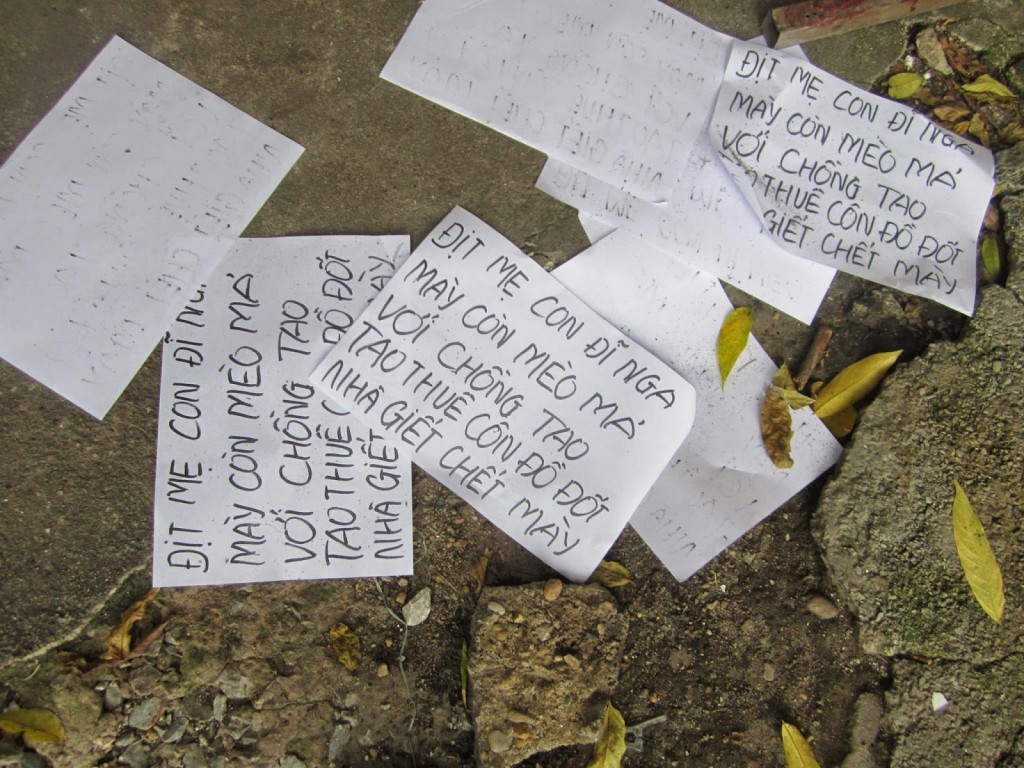 ĐỊT MẸ CON ĐĨ NGA
MÀY CÒN MÈO MẢ
VỚI CHỒNG TAO
TAO THUÊ CÔN ĐỒ ĐỐT
NHÀ GIẾT CHẾT MÀY
ĐỊT MẸ CON ĐĨ
MÀY CÒN MÈO MẢ
VỚI CHỒNG TAO
TAO THUÊ ĐỒ ĐỐT
NHÀ GIẾT MÀY
ĐỊT MẸ CON ĐĨ NGA
MÀY CÒN MÈO MẢ
VỚI CHỒNG TAO
TAO THUÊ CÔN ĐỒ ĐỐT
GIẾT CHẾT MÀY